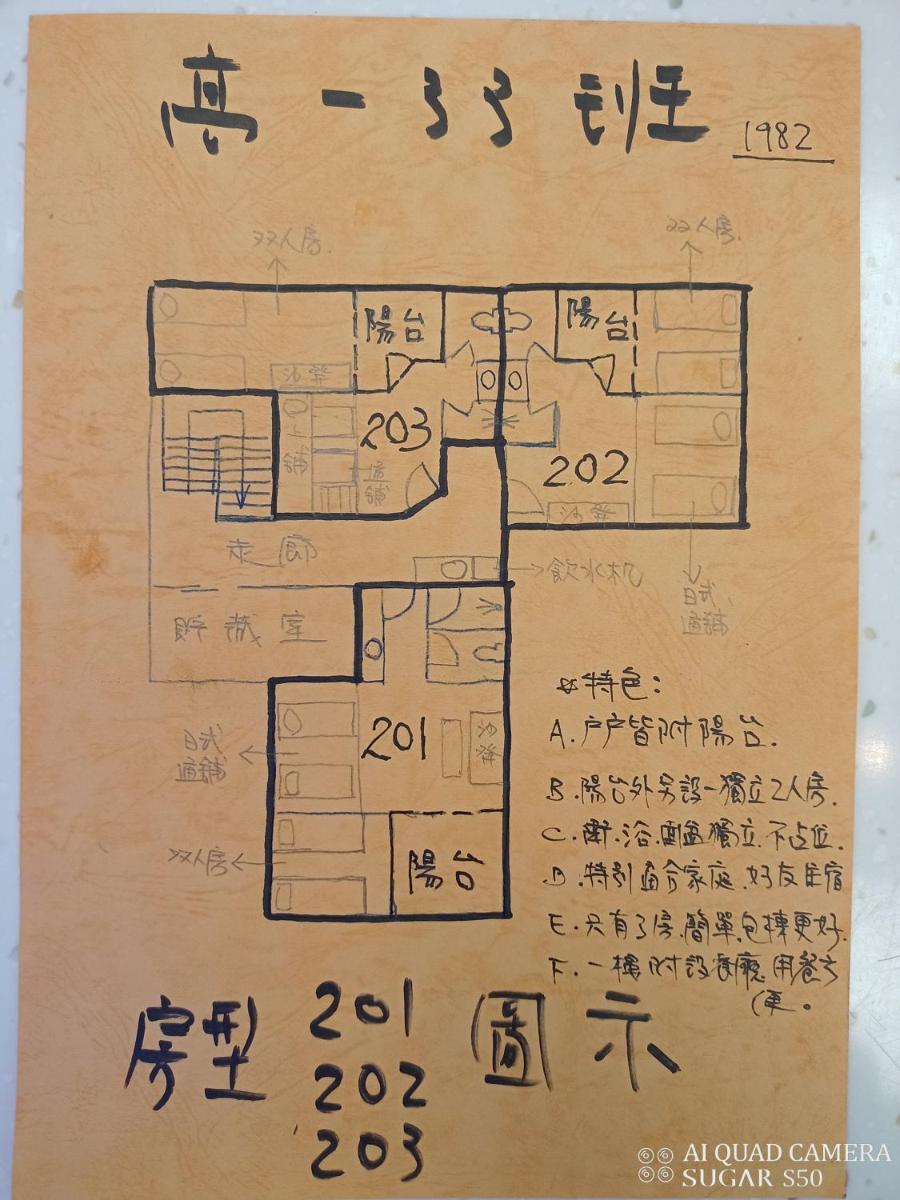 高一33班
1982
双人房.
双人房.
陽台
陽台
沙發
203
上
舖
通
舖
202
沙發
走廊
飲水机
貯藏室
日式
通舖
☆特色:
201
沙
發
日式
通舖
A.戶戶皆附陽台.
B.陽台外另設一獨立2人房.
C.廁.浴.面盆獨立.不占位.
双人房
陽台
D.特別適合家庭.好友住宿
E.只有3房.簡單.包棟更好.
F.一樓附設餐廳.用餐方
便。
房型 201 圖示
202
203
AI QUAD CAMERA
SUGAR S50